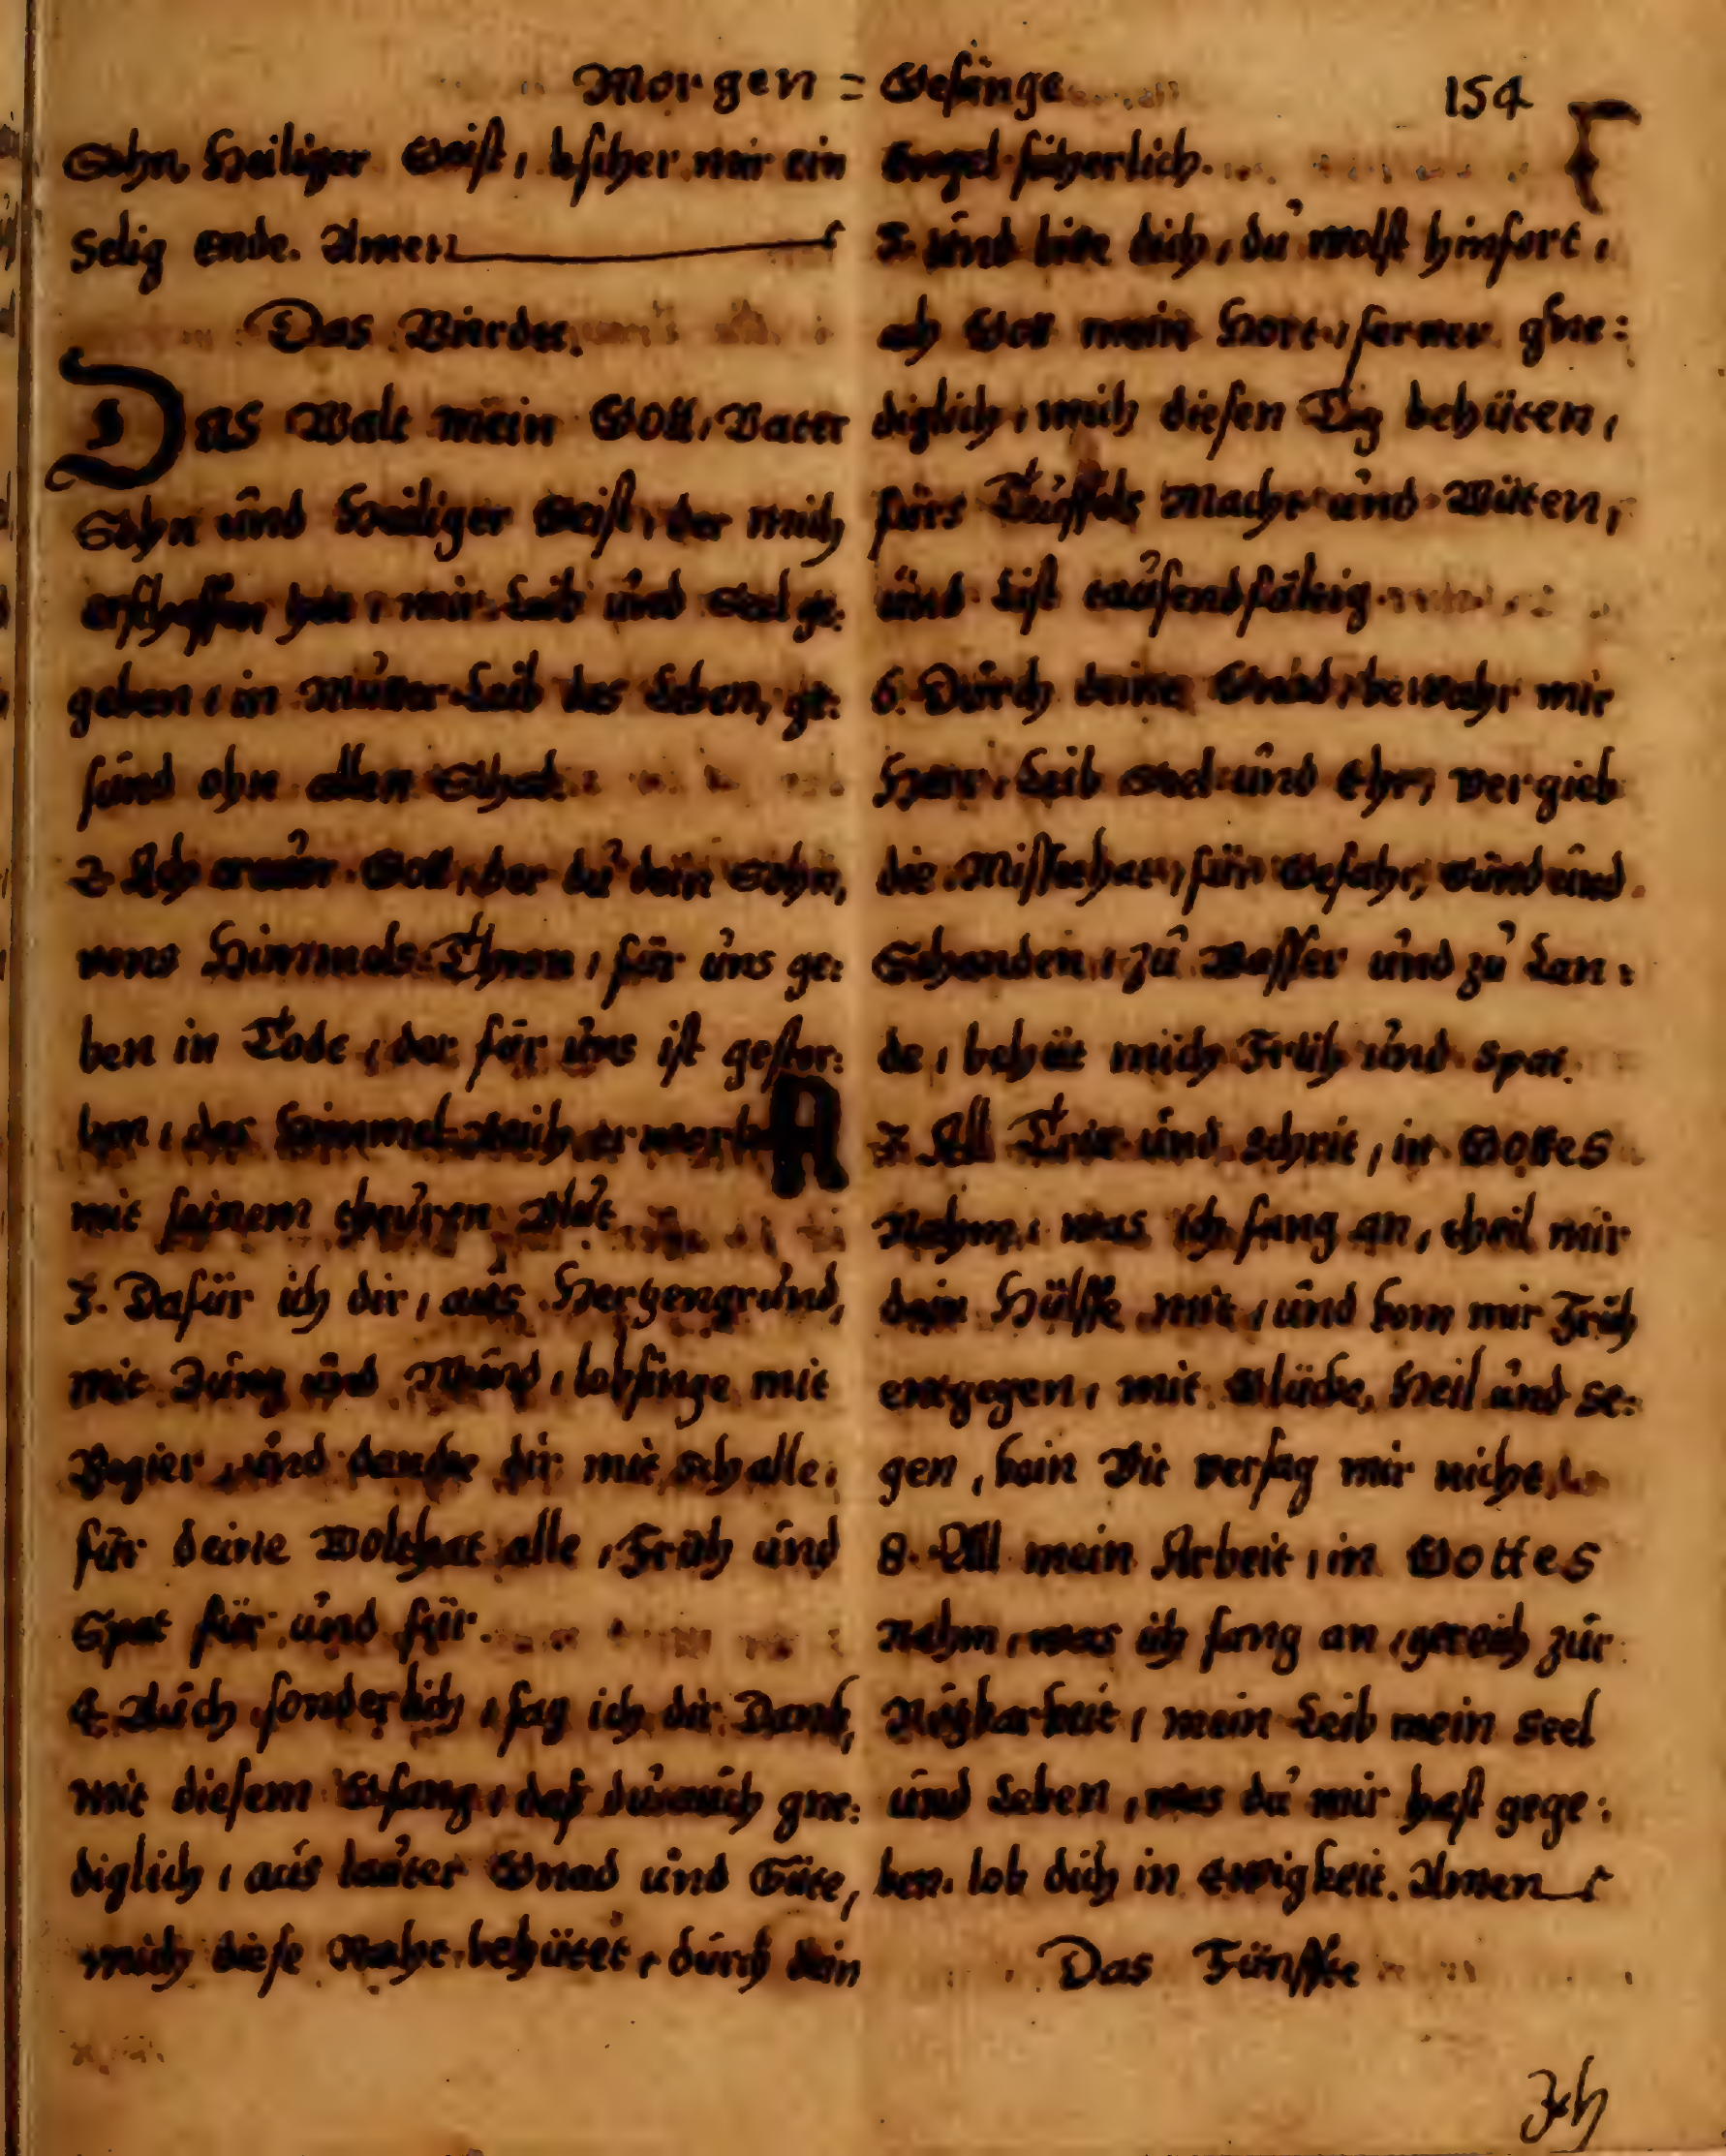 Morgen = Gesänge 154
Sohn Heiliger Geist, bscher mir ein
Selig ende. Amen
Das Vierdte.
Das Walt mein Gott, Vater
Sohn und Heiliger Geist, der mich
erschaffen hat, mir Leib und Seel ge:
geben, in Mutter Leib das Leben, ge:
sund ohn allen Schad.
2. Ach Gott, der du dein Sohn,
vons Himmels Thron, für uns ge:
ben in Tode, der für uns ist gestor:
ben, das Himmelreich erworben
mit seinem theuren Blut
3. Dafür ich dir, aus Hertzengrund,
mit Zung und Mund, lobsinge mit
Begier, und dancke dir mit schalle,
für deine Wolthat alle, Früh und
Spat für und für.
4. Auch sonderlich, sag ich dir Dank,
mit diesem Gsang, daß du auch gne:
diglich, aus lauter Gnad und Güte,
mich diese Nacht behütet, durch dein
Engel sicherlich.
5. und bitte dich, du wolst hinfort,
ach Gott mein Hort, ferner gne:
diglich, mich diesen Tag behüten,
fürs Teuffels Macht und Wüten,
und List tausendfältig.
6. Durch deine Gnad, bewahr mir
Herr, Leib Seel und Ehr, vergieb
die Missethat, für Gefahr, und
Schanden, zu Wasser und zu Lan:
de, behüt mich Früh und Spat.
7. All Trit und schrit, in Gottes
Nahm, was ich fang an, theil mir
dein Hülffe mit, und kom mir Früh
entgegen, mit Glücke, Heil und Se:
gen, kein Bit versag mir nicht.
8. All mein Arbeit, in Gottes
Nahm, was ich fang an, gereich zur
Nützbarkeit, mein Leib mein Seel
und Leben, was du mir hast gege:
ben. lob dich in Ewigkeit. Amen
Das Fünffte
Ich